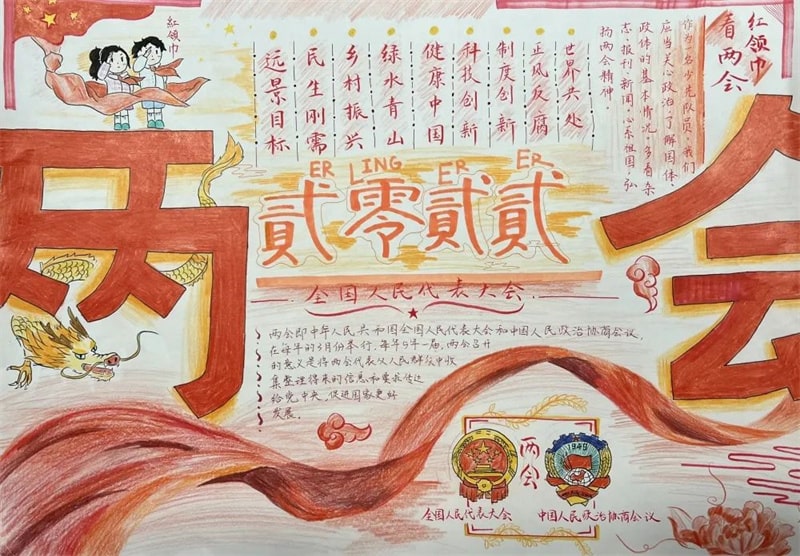 两会
紅领巾
红领巾
看两会
作为一名少先队员,我们
应当关心政治,了解国体、
政体的基本情况,多看杂
志、报刊、新闻,心系祖国,弘
扬两会精神。
世界共处
正风反腐
制度创新
科技创新
健康中国
绿水青山
乡村振兴
民生刚需
远景目标
ER LING ER ER
貳零貳貳
全国人民代表大会
两会即中华人民共和国全国人民代表大会和中国人民政治协商会议,
在每年的3月份举行,每年5年一届,两会召开
的意义是将两会代表从人民群众中收
集整理得来的信息和要求传达
给党中央,促进国家更好
发展。
两会
1949
全国人民代表大会
中国人民政治协商会议